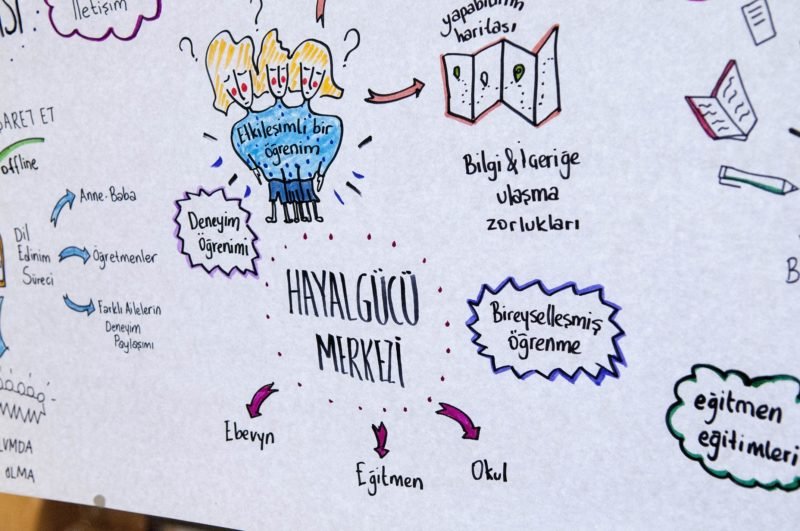 İletişim
yapabilirim
haritası
Etkileşimli bir
öğrenim
ARET ET
offline
Bilgi & İçeriğe
ulaşma
zorlukları
Anne-Baba
Dil
Edinim
Süreci
Öğretmenler
Farklı Ailelerin
Deneyim
Paylaşımı
Deneyim
Öğrenimi
HAYALGÜCÜ
MERKEZİ
Bireyselleşmiş
Öğrenme
Ebevyn
Eğitmen
Okul
eğitmen
eğitimleri
OLMA